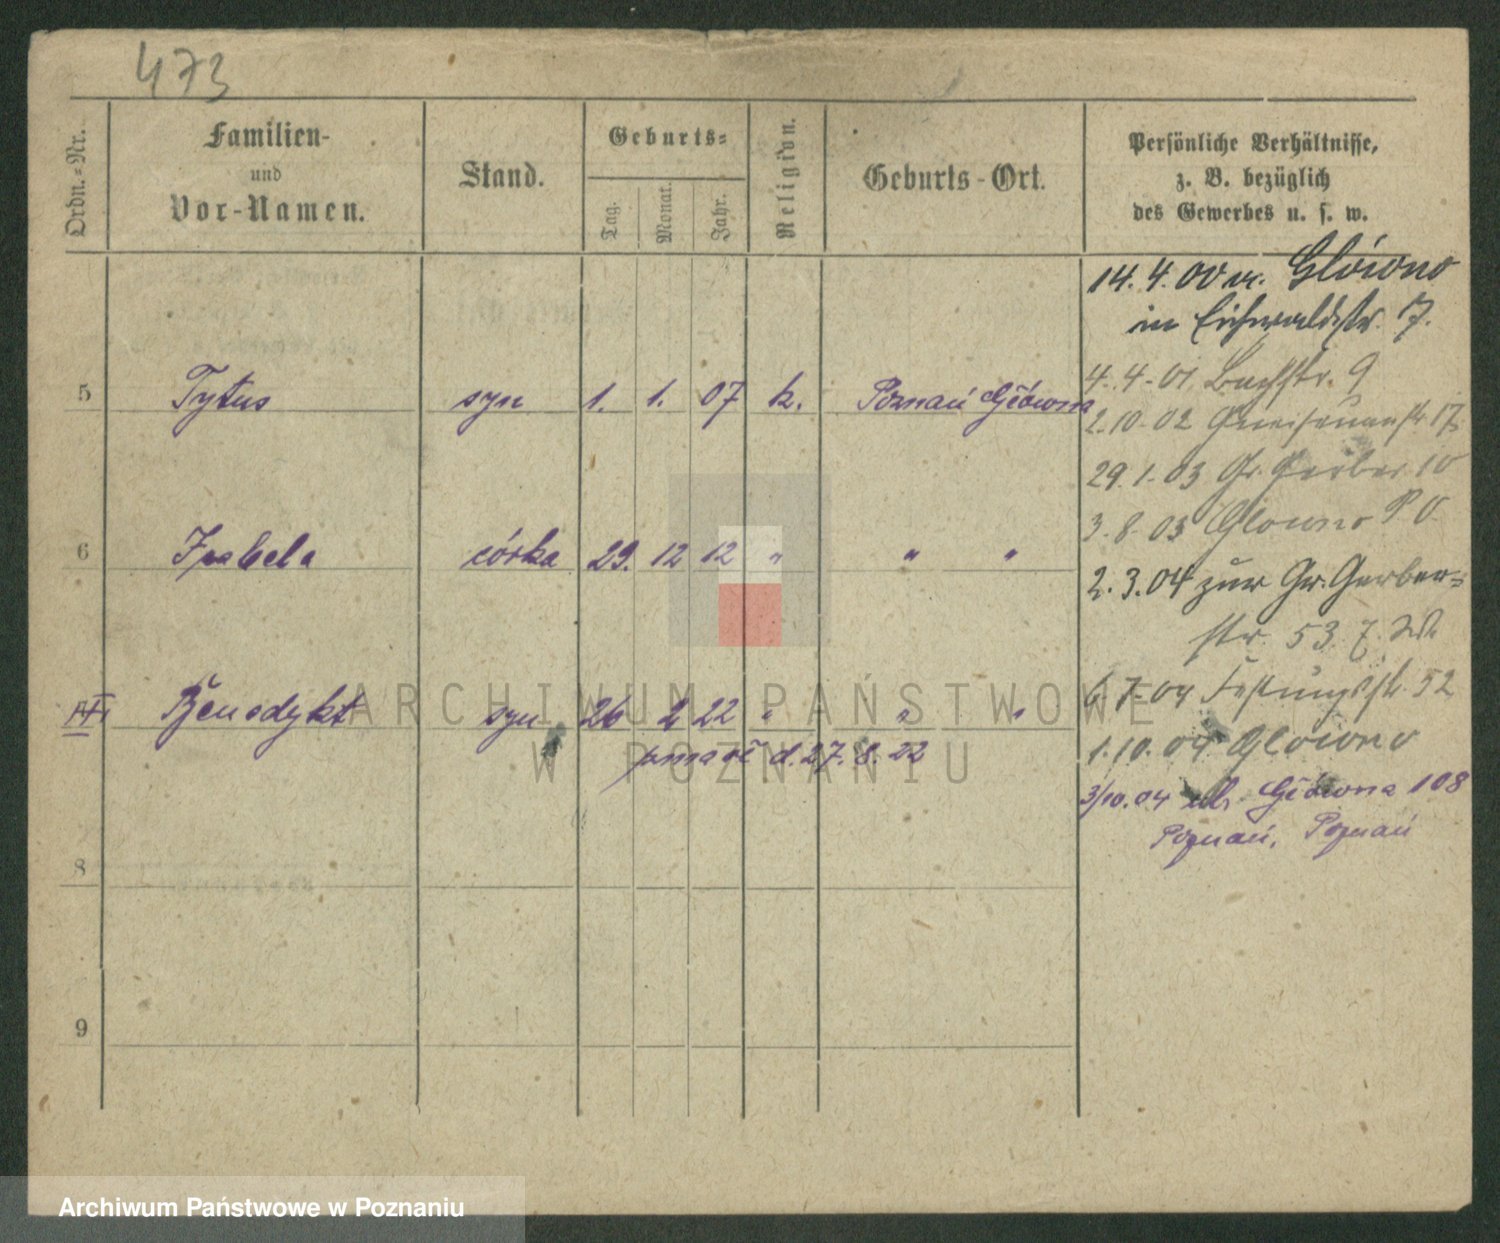 473
Ordn.-Nr.
Familien-
und
Vor-Namen.
Stand.
Geburts-
Tag.
Monat.
Jahr.
Religion.
Geburts-Ort.
Persönliche Verhältnisse,
z. B. bezüglich
des Gewerbes u. s. w.
14.4.00 n. Glowno
in Eichwaldstr. 7.
4.4-01 Bachstr. 9
5 Tytus syn 1. 1. 07 k. Poznań Główna
2.10-02 Gneisenaustr 17
29.1-03 Gr. Gerber 10
3-8-03 Glowno
6 Izabela córka 29. 12 12 " " "
2.3.04 zur Gr. Gerber-
str. 53
Benedykt syn 26 2 22 " " "
6-7-04 Festungsstr. 52
1.10.04 Glowno
zmarł d. 27. 8. 22
3/10.04 ul. Główna 108
Poznań, Poznań
8
9
ARCHIWUM PAŃSTWOWE
W POZNANIU
Archiwum Państwowe w Poznaniu